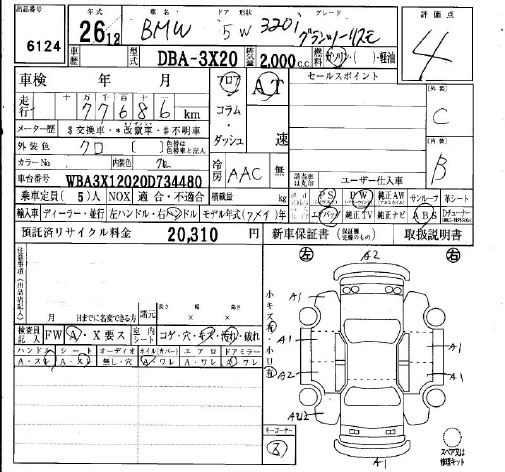 出品番号 6124
年式 26/12
車名 BMW
ドア 形状 5 W
グレード 320i グランツーリスモ
評価点 4
車歴
型式 DBA-3X20
排気量 2,000 c.c
燃料 ガソリン・( )・軽油
車検 年 月
走行 十万 7 万 7 千 6 百 8 十 6 km
メーター歴 $ 交換車・* 改竄車・# 不明車
外装色 クロ
カラーNo. 内装色
車台番号 WBA3X12020D734480
フロア AT
コラム・ダッシュ 速
冷房 AAC 無
セールスポイント
外装 C
内装 B
ユーザー仕入車
乗車定員 ( 5 ) 人 NOX 適合・不適合 積載量 kg
PS PW 純正AW サンルーフ 革シート
エアバッグ 純正TV 純正ナビ ABS
輸入車 ディーラー・並行 左ハンドル・右ハンドル モデル年式 ( ) 年
預託済リサイクル料金 20,310 新車保証書 取扱説明書
注意事項(出品店記入)
月 日までに名変できる方
諸元 長さ 幅 高さ × ×
検査員記入 FW A・X要ス 室内シート コゲ・穴・キズ・汚れ・破れ
ハンドル シート オーディオ ホイル(カバー) エアロ ドアミラー
A・スレ A・X 無し・穴 A・ワレ A・ワレ A・ワレ
小キズ有・小凹有
左 右
A2
A1
A1 A1
A2 A1
A1
キーコーナー
スペア又は修理キット